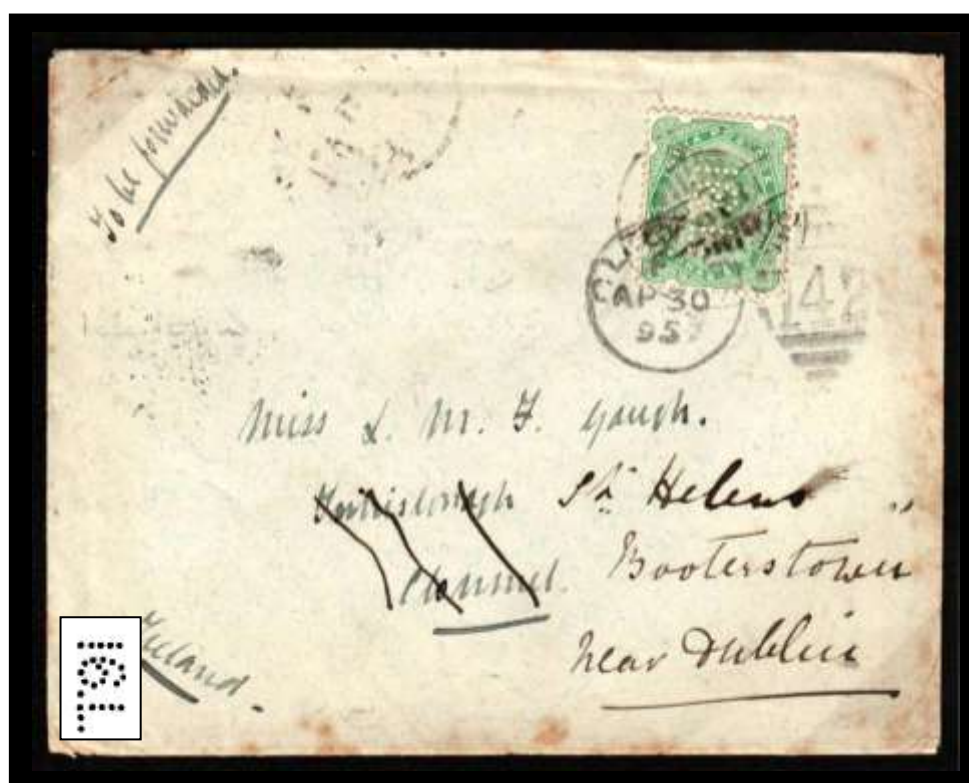 To be forwarded.
AP 30
95
142
Miss L. M. F. Gough.
St. Helens
Clonmel. Booterstown
near Dublin
Ireland.